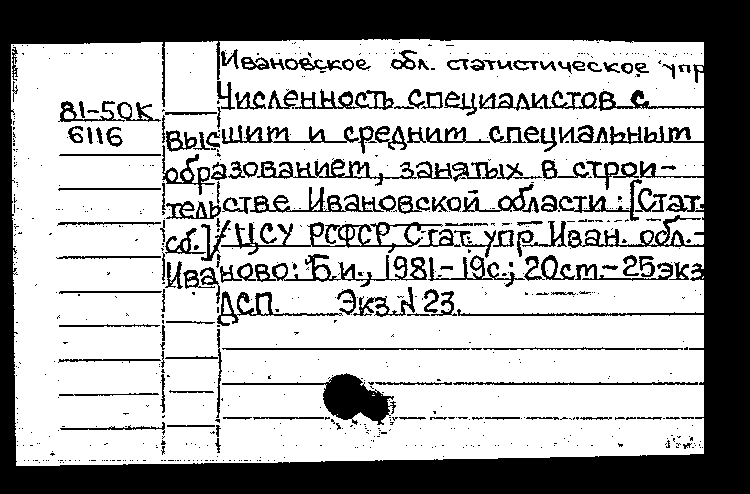 Ивановское обл. статистическое упр
81-50К
6116
Численность специалистов с
высшим и средним специальным
образованием, занятых в строи-
тельстве Ивановской области: [Стат.
сб.] / ЦСУ РСФСР, Стат. упр. Иван. обл.-
Иваново: Б.и., 1981.- 19с.; 20см.- 25экз
ДСП. Экз.№23.